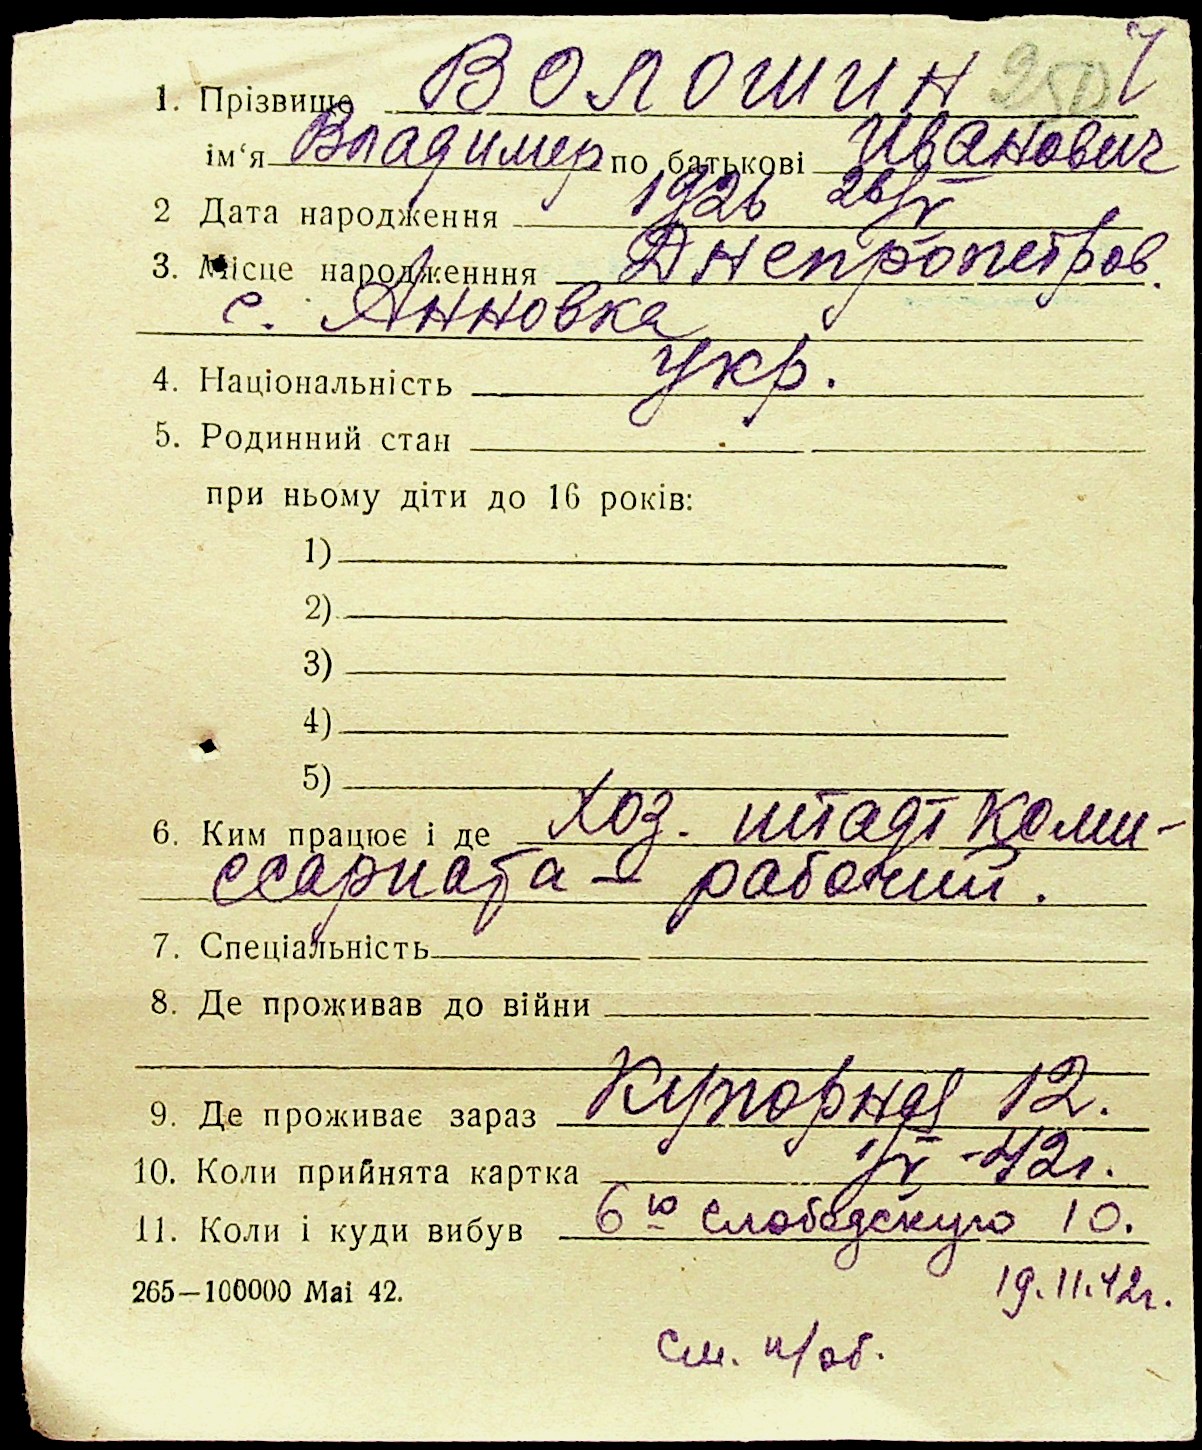 1. Прізвище ВОЛОШИН
ім‘я Владимер по батькові Иванович
2 Дата народження 1926 26/V
3. Місце народженння Днепропетров.
с. Анновка
4. Національність укр.
5. Родинний стан
при ньому діти до 16 років:
1)
2)
3)
4)
5)
6. Ким працює і де Хоз. штадт коми-
ссариата – рабочий.
7. Спеціальність
8. Де проживав до війни
9. Де проживає зараз Купорная 12.
10. Коли прийнята картка -42г.
11. Коли і куди вибув 6ю Слободскую 10.
265—100000 Mai 42. 19.11.42г.
См. н/об.